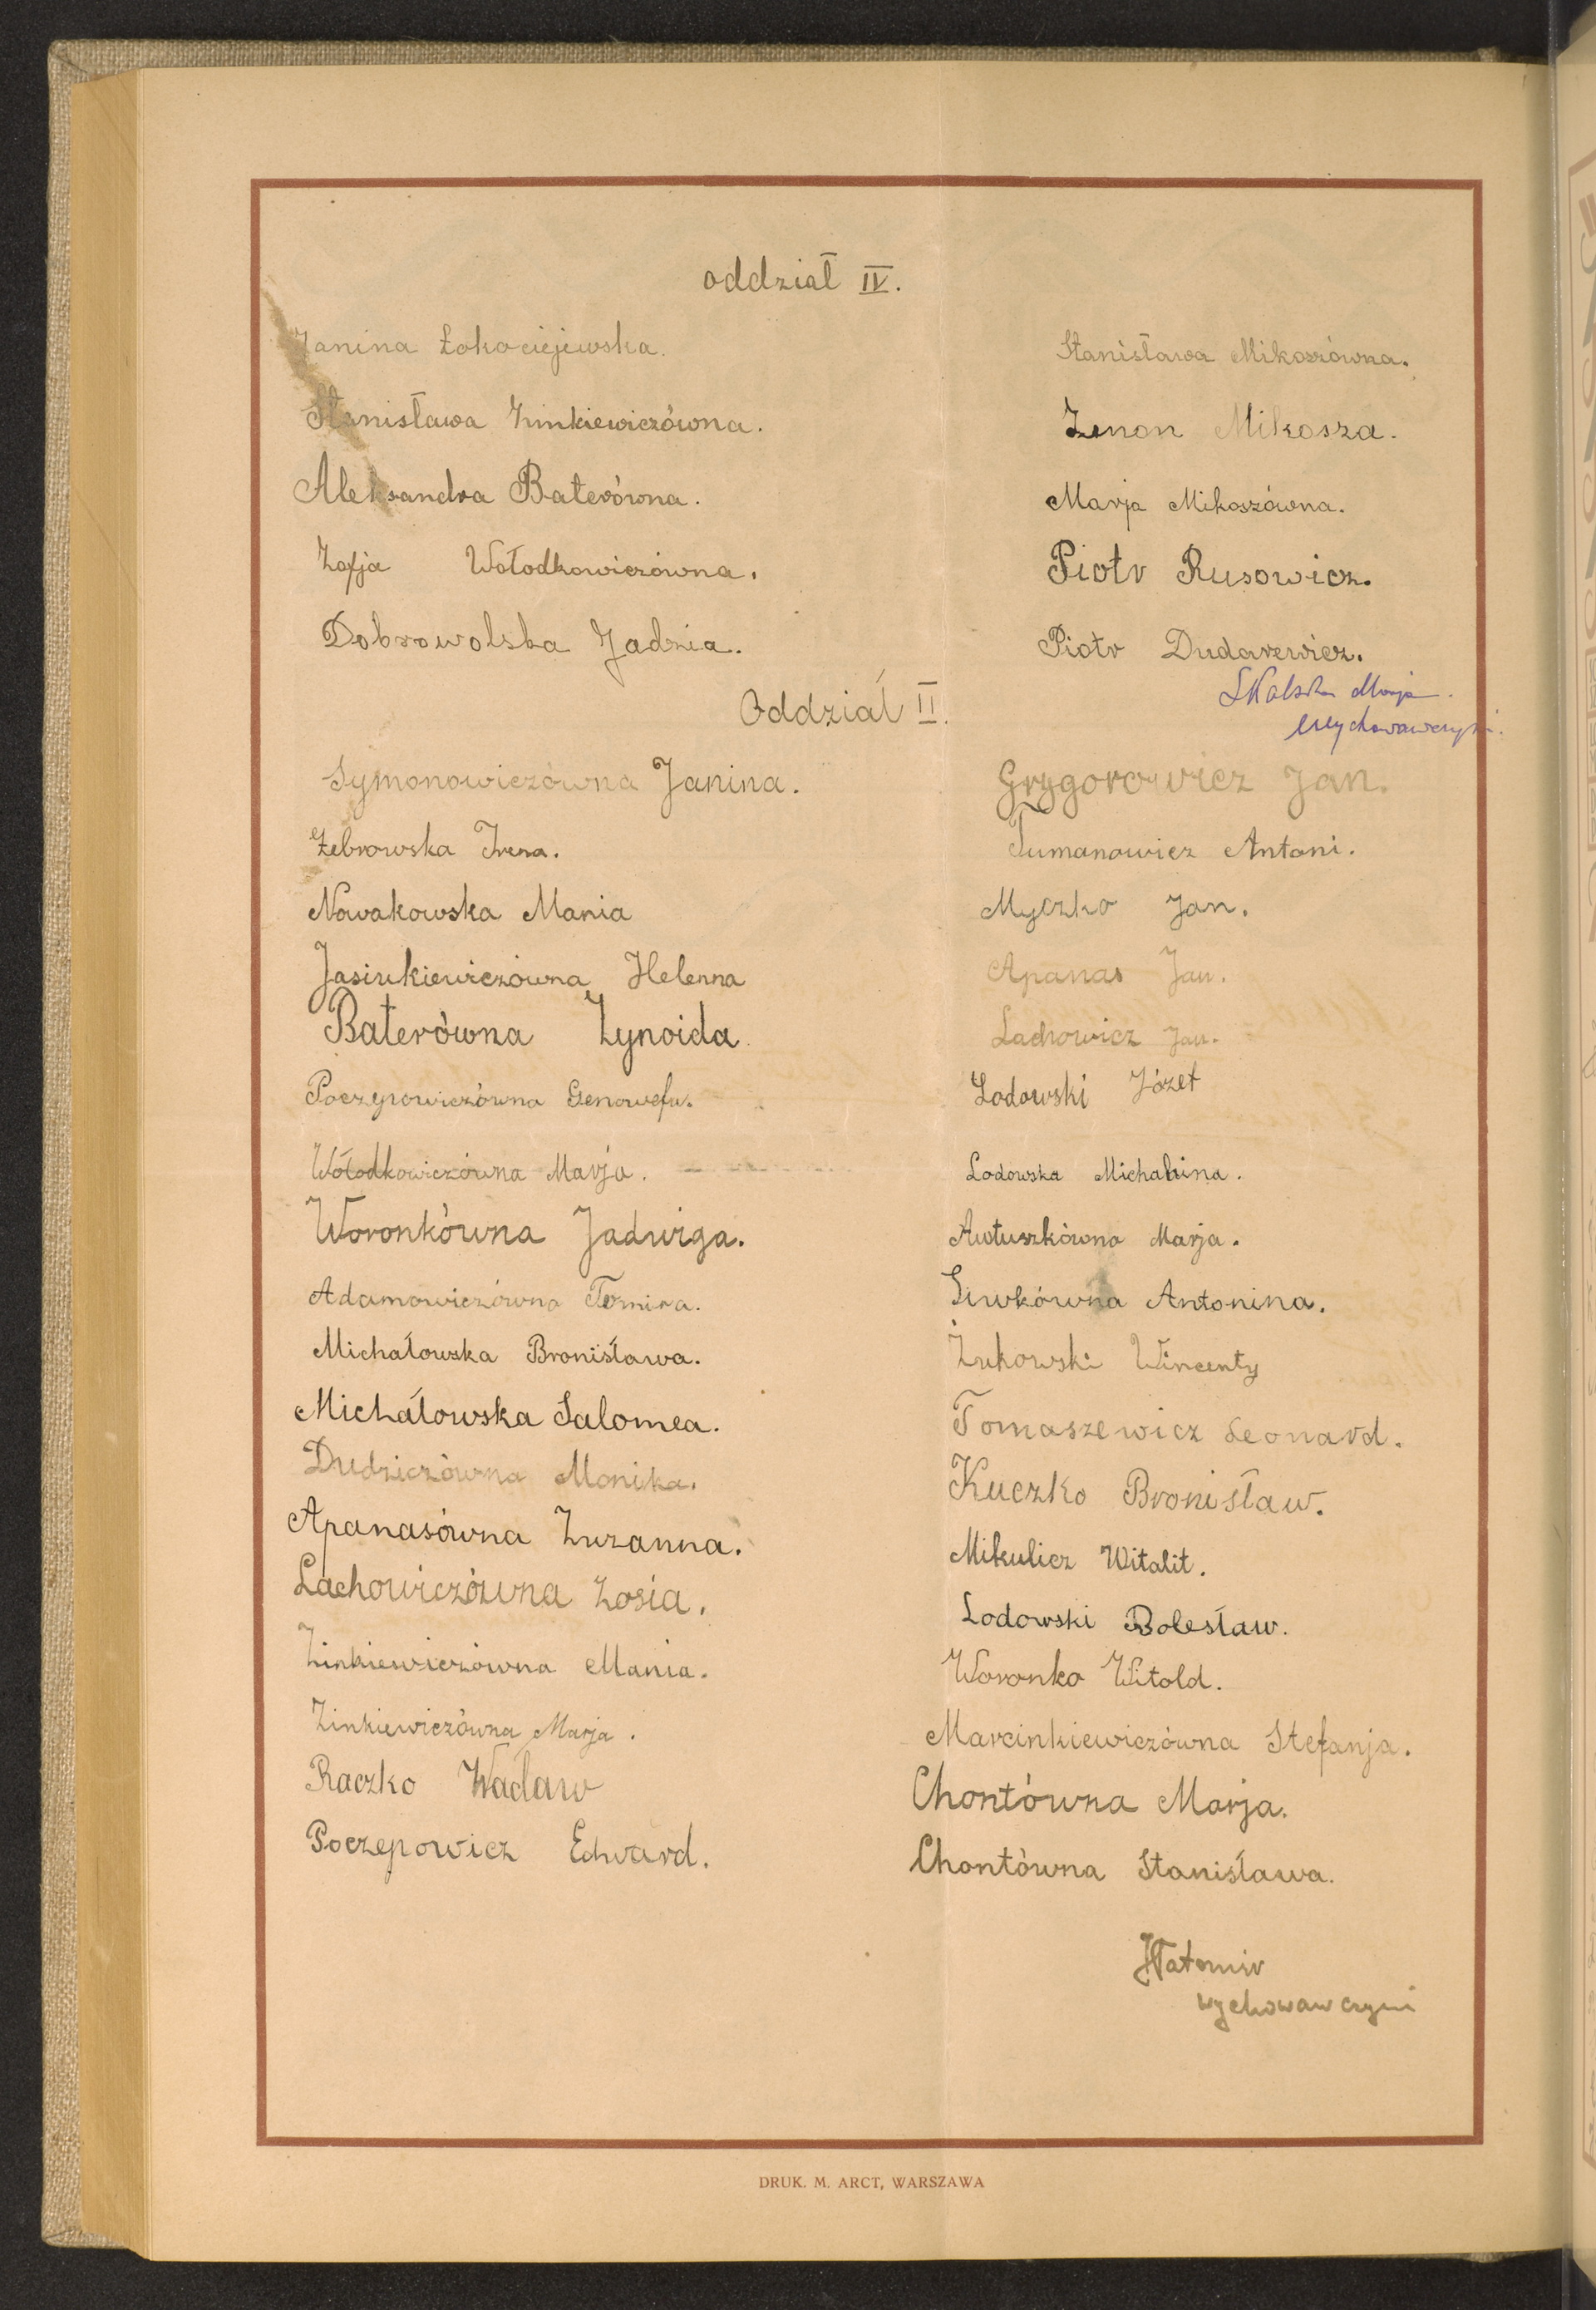 oddział IV.
Janina Łokociejewska.
Stanisława Zinkiewiczówna.
Aleksandra Baterówna.
Zofja Wołodkowiczówna.
Dobrowolska Jadzia.
Stanisława Mikoszówna.
Zenon Mikosza.
Marja Mikoszówna.
Piotr Rusowicz.
Piotr Dudarewicz.
Skalska Marja
wychowawczyni.
Oddział II.
Symonowiczówna Janina.
Żebrowska Irena.
Nowakowska Mania
Jasiukiewiczówna Helenna
Baterówna Zynoida
Poczepowiczówna Genowefa.
Wołodkowiczówna Marja.
Woronkówna Jadwiga.
Adamowiczówna
Michałowska Bronisława.
Michałowska Salomea.
Dudziczówna Monika.
Apanasówna Zuzanna.
Lachowiczówna Zosia.
Zinkiewiczówna Mania.
Zinkiewiczówna Marja.
Raczko Wacław
Poczepowicz Edward.
Grygorowicz Jan.
Tumanowicz Antoni.
Myczko Jan.
Apanas Jan.
Lachowicz Jan.
Lodowski Józef
Lodowska Michalina.
Awtuszkówna Marja.
Siwkówna Antonina.
Żukowski Wincenty
Tomaszewicz Leonard.
Kuczko Bronisław.
Mikulicz Witalit.
Lodowski Bolesław.
Woronko Witold.
Marcinkiewiczówna Stefanja.
Chontówna Marja.
Chontówna Stanisława.
wychowawczyni
DRUK. M. ARCT, WARSZAWA